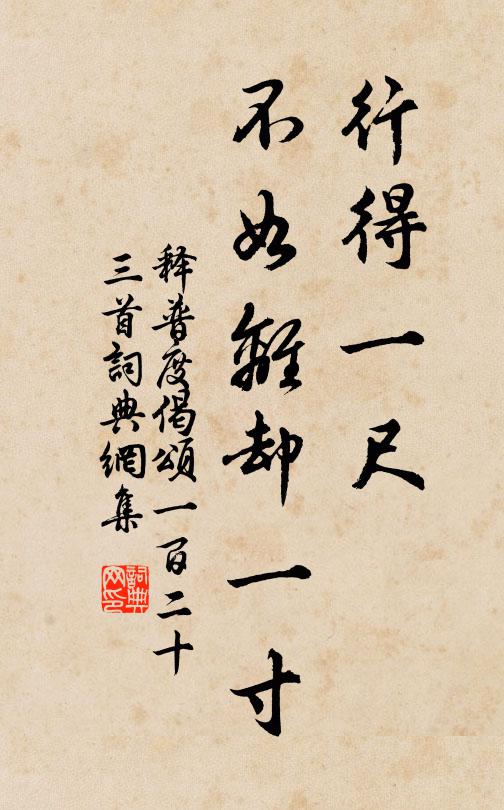 行得一尺
不如離却一寸
释普度偈頌一百二十
三首詞典網集
詞典网印